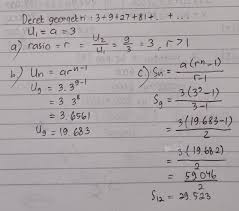 Deret geometri : 3 + 9 + 27 + 81 + ... + ...
U₁ = a = 3
a) rasio = r = U₂/U₁ = 9/3 = 3, r > 1
b) Un = arⁿ⁻¹
U₉ = 3.3⁹⁻¹
= 3.3⁸
= 3.6561
U₉ = 19.683
c) Sn = a(rⁿ-1)/r-1
S₉ = 3(3⁹-1)/3-1
= 3(19.683-1)/2
= 3(19.682)/2
= 59.046/2
S₁₂ = 29.523